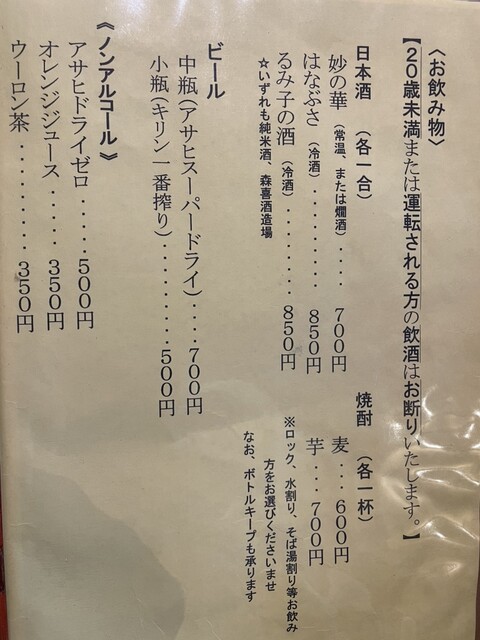 〈お飲み物〉
【20歳未満または運転される方の飲酒はお断りいたします。】
日本酒 (各一合)
妙の華(常温、または燗酒)....700円
はなぶさ(冷酒).........850円
るみ子の酒(冷酒).........850円
☆いずれも純米酒、森喜酒造場
焼酎 (各一杯)
麦...600円
芋...700円
※ロック、水割り、そば湯割り等お飲み
方をお選びくださいませ
なお、ボトルキープも承ります
ビール
中瓶(アサヒスーパードライ)....700円
小瓶(キリン一番搾り).........500円
《ノンアルコール》
アサヒドライゼロ.....500円
オレンジジュース.....350円
ウーロン茶.........350円